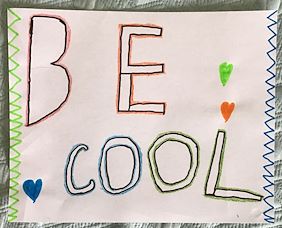 BE
COOL